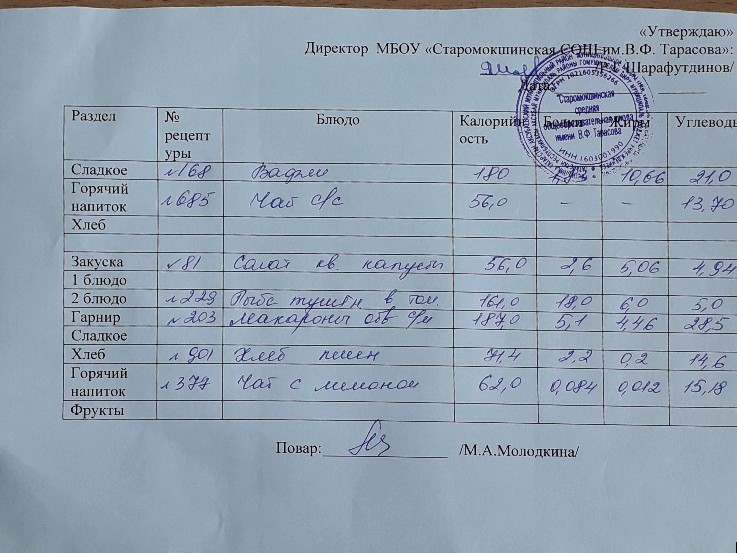 «Утверждаю»
Директор МБОУ «Старомокшинская СОШ им.В.Ф. Тарасова»:
Шарафутдинов/
Дата
Раздел № рецептуры Блюдо Калорийность Белки Жиры Углеводы
Сладкое №168 Вафли 180 10,66 21,0
Горячий напиток №685 Чай с/с 56,0 – – 13,70
Хлеб
Закуска №81 Салат кв. капусты 56,0 2,6 5,06 4,94
1 блюдо
2 блюдо №229 Рыба тушен в том. 161,0 18,0 6,0 5,0
Гарнир №203 Макароны отв с/м 187,0 5,1 4,46 28,5
Сладкое
Хлеб №901 Хлеб пшен 71,4 2,2 0,2 14,6
Горячий напиток №377 Чай с лимоном 62,0 0,084 0,012 15,18
Фрукты
Повар: /М.А.Молодкина/
Старомокшинская
средняя
общеобразовательная школа
имени В.Ф Тарасова
ИНН 1603001990